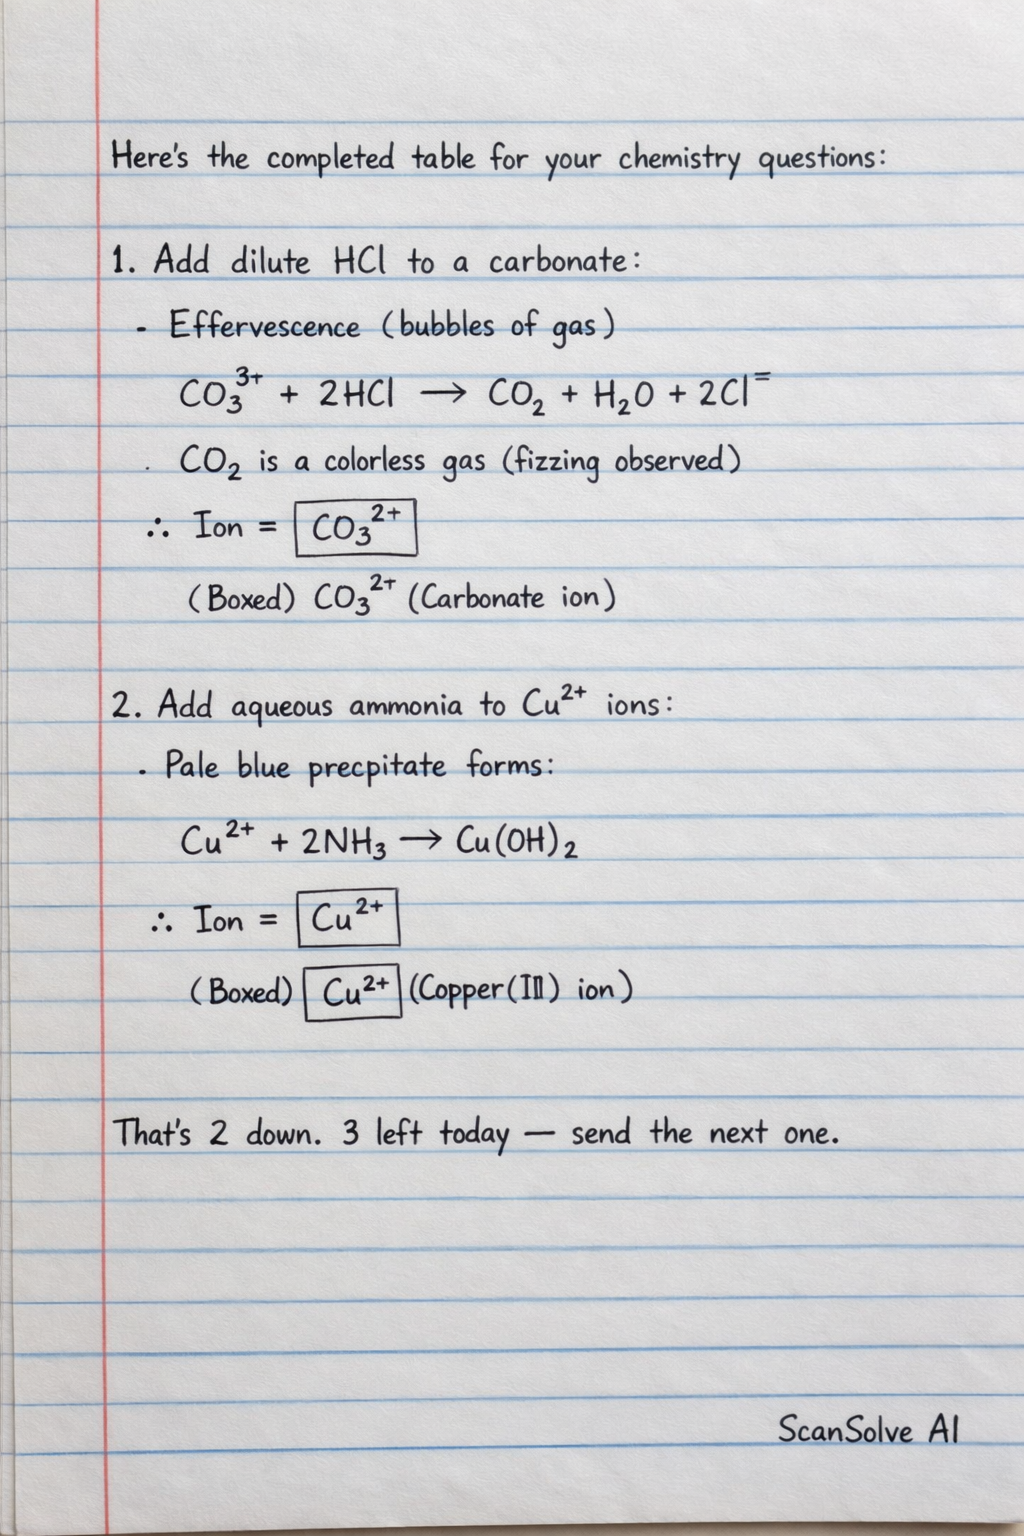 Here's the completed table for your chemistry questions:
1. Add dilute HCl to a carbonate:
- Effervescence (bubbles of gas)
CO₃³⁺ + 2HCl → CO₂ + H₂O + 2Cl⁼
. CO₂ is a colorless gas (fizzing observed)
∴ Ion = CO₃²⁺
(Boxed) CO₃²⁺ (Carbonate ion)
2. Add aqueous ammonia to Cu²⁺ ions:
. Pale blue precpitate forms:
Cu²⁺ + 2NH₃ → Cu(OH)₂
∴ Ion = Cu²⁺
(Boxed) Cu²⁺ (Copper(III) ion)
That's 2 down. 3 left today — send the next one.
ScanSolve AI